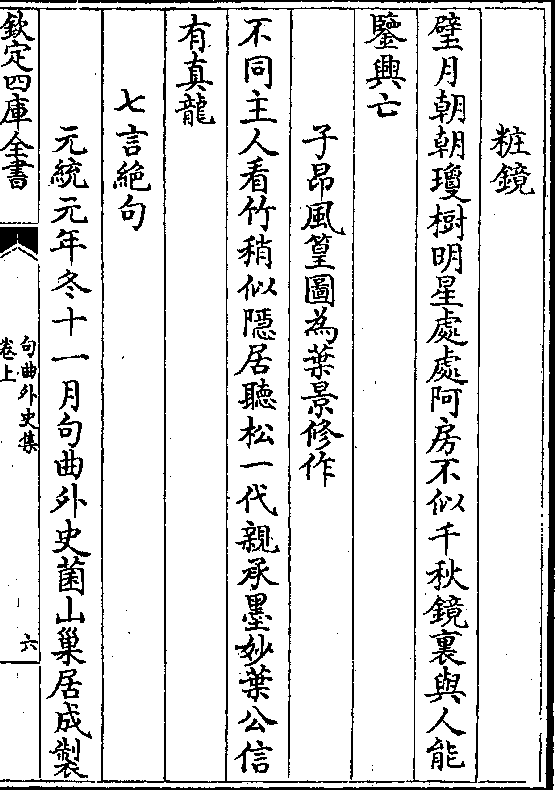 粧鏡
璧月朝朝瓊樹明星處處阿房不似千秋鏡裏與人能
鑒興亡
子昂風篁圖為葉景修作
不同主人看竹稍似隱居聽松一代親承墨妙葉公信
有真龍
七言絶句
元統元年冬十一月句曲外史菌山巢居成製
欽定四庫全書
句曲外史集
卷上
六